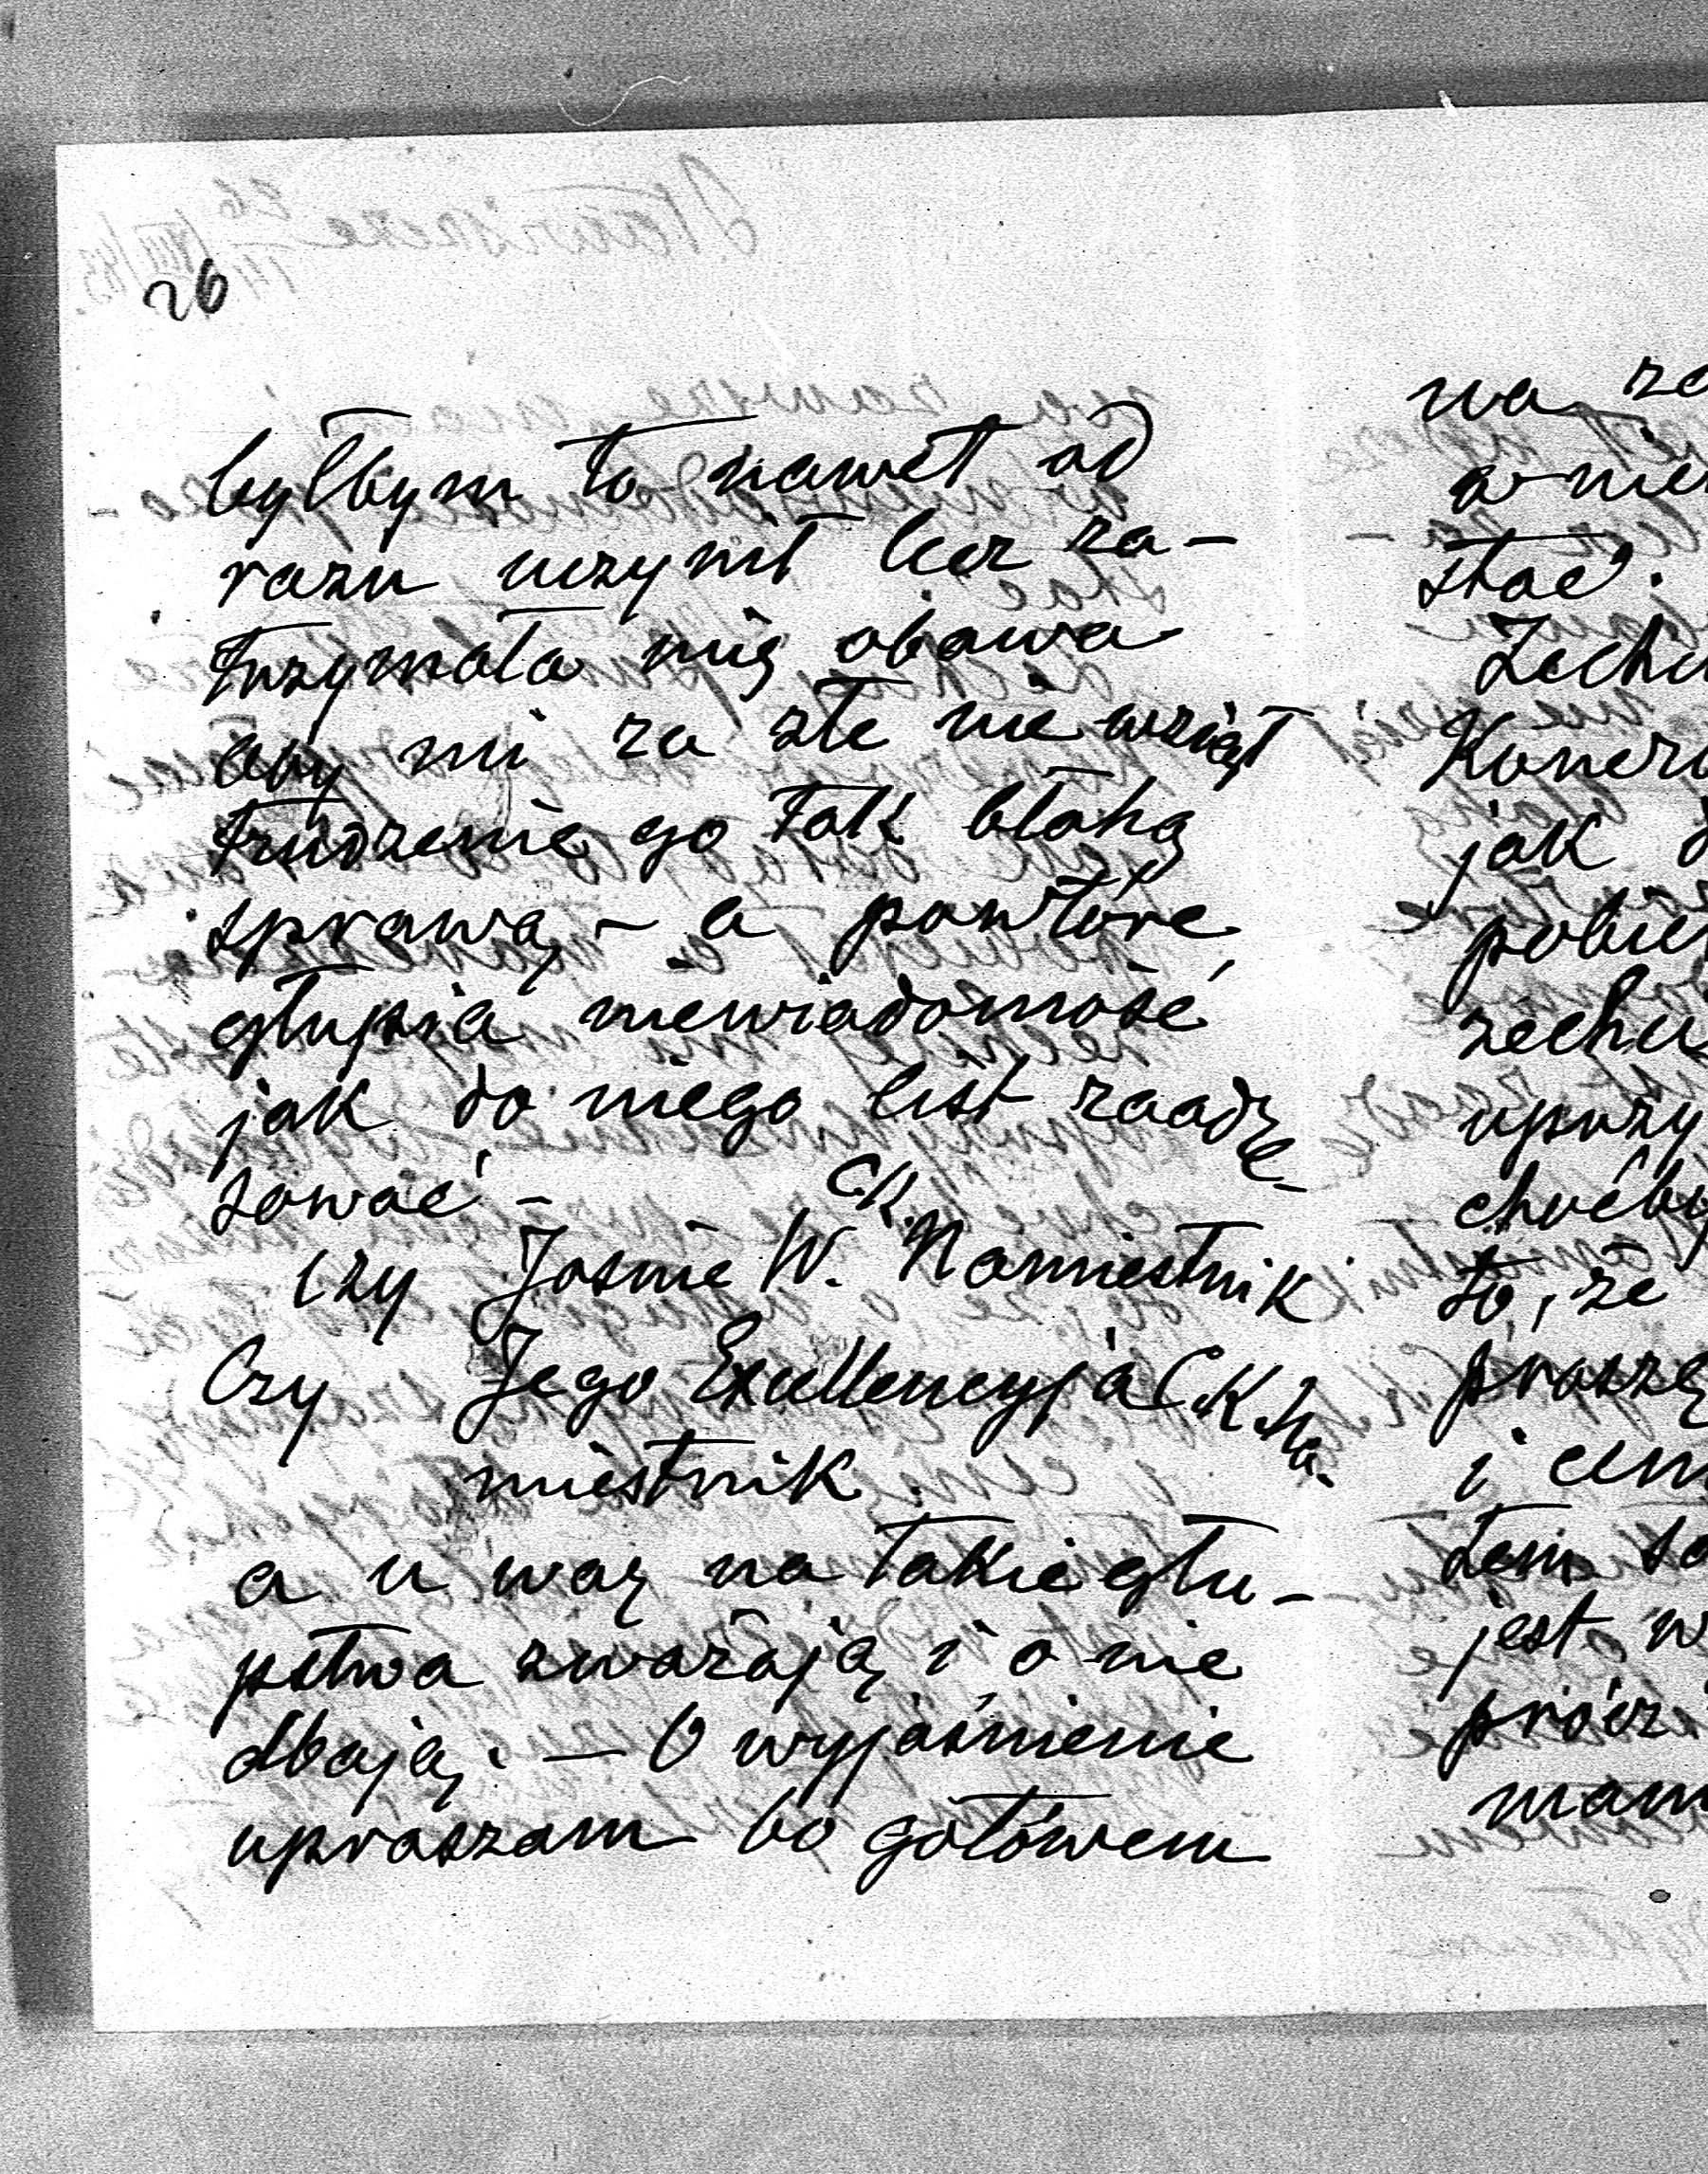 26
byłbym to nawet od
razu uczynił lecz za-
trzymała mię obawa
aby mi za złe nie wziął
trudzenie go tak błahą
sprawą, - a powtóre
głupia niewiadomość
jak do niego list zaadre-
sować -
czy Jaśnie W. C.K. Namiestnik
Czy Jego Excellencyja C.K. Na-
miestnik.
a u was na takie głu-
pstwa zważają i o nie
dbają. - O wyjaśnienie
upraszam bo gotówem
wa za
w nie
stać.
Zechc
Koncer
jak
pobie
zechc
uprzy
choćby
to, że
proszę
i cen
tem sa
jest w
prócz
mam